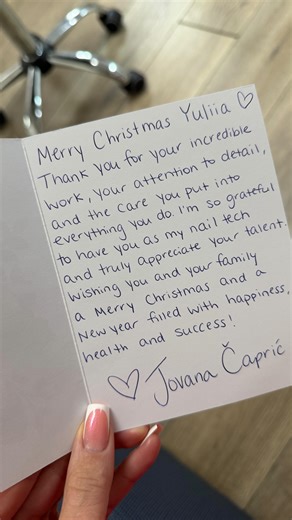 Merry Christmas Yuliia ♡
Thank you for your incredible
work, your attention to detail,
and the care you put into
everything you do. I'm so grateful
to have you as my nail tech
and truly appreciate your talent.
Wishing you and your family
a Merry Christmas and a
New year filled with happiness,
health and success!
♡ Jovana Čaprić